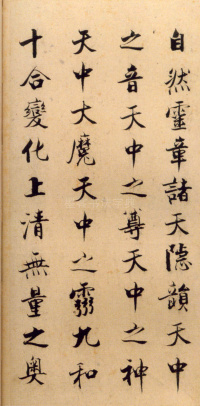 自然靈章諸天隱韻天中
之音天中之尊天中之神
天中大魔天中之靈九和
十合變化上清無量之奧